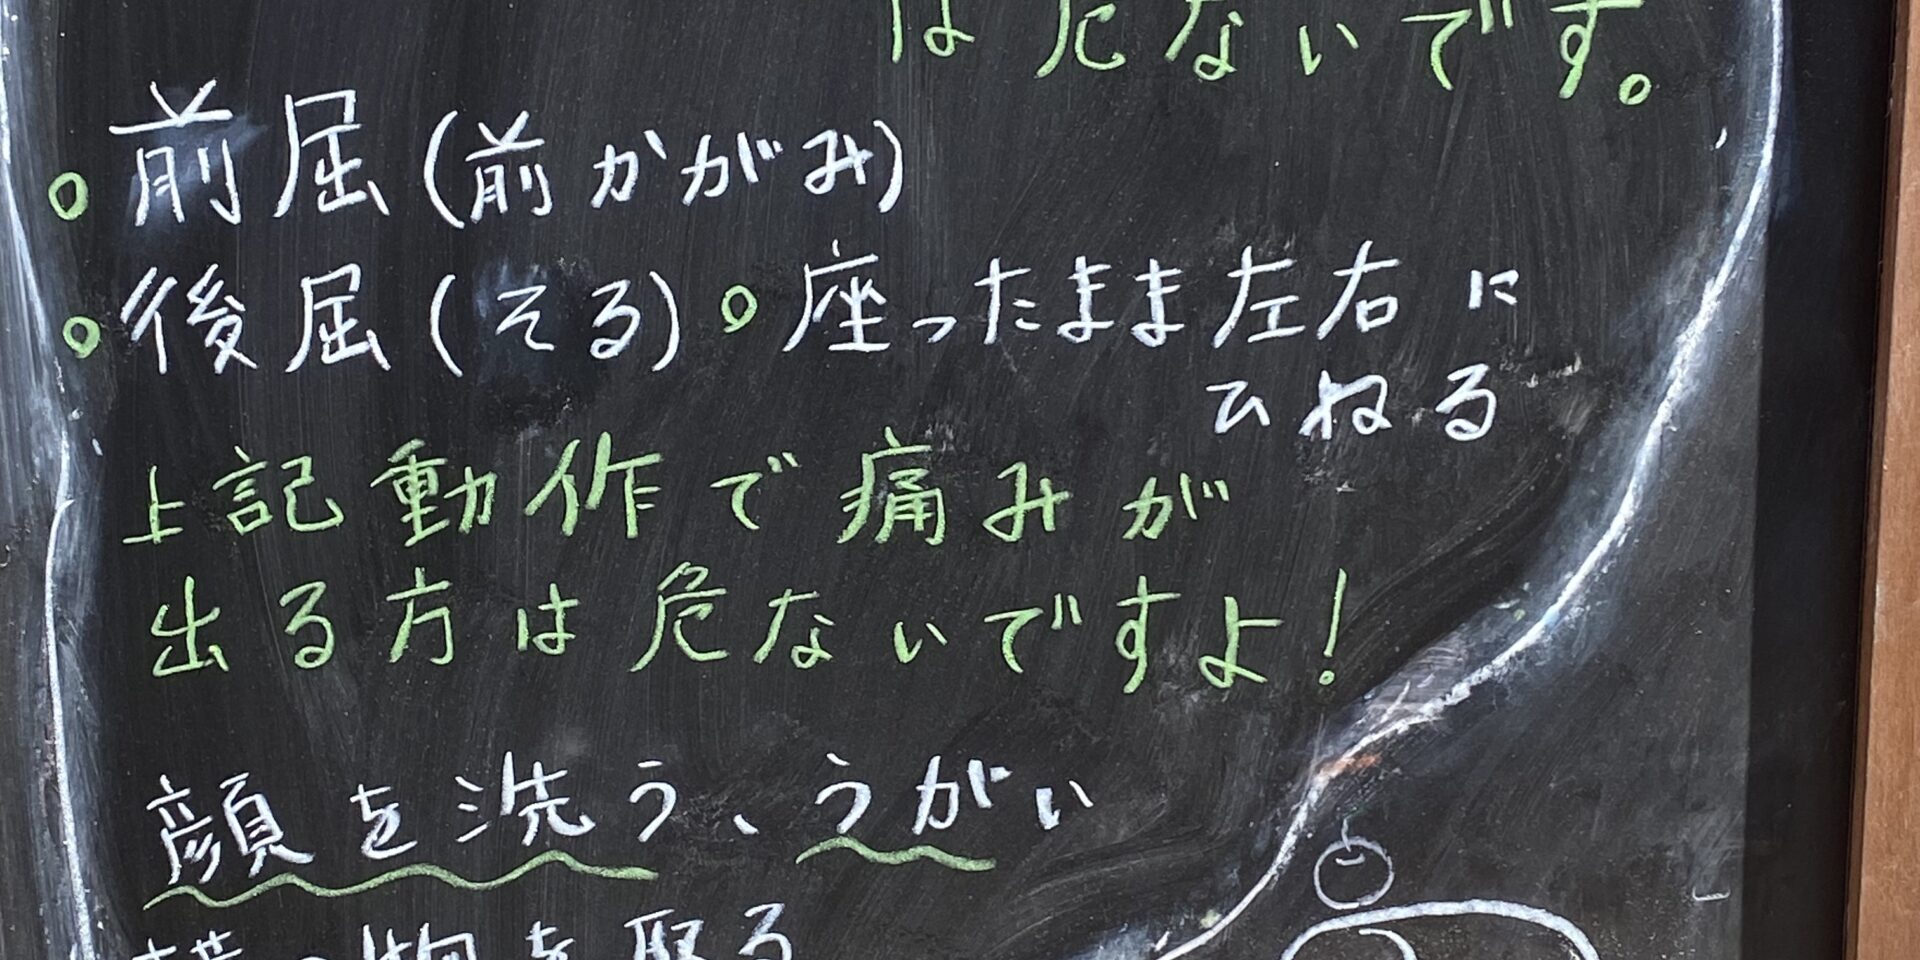 は危ないです。
○前屈(前かがみ)
○後屈(そる)○座ったまま左右に
ひねる
上記動作で痛みが
出る方は危ないですよ!
顔を洗う、うがい
横の物を取る